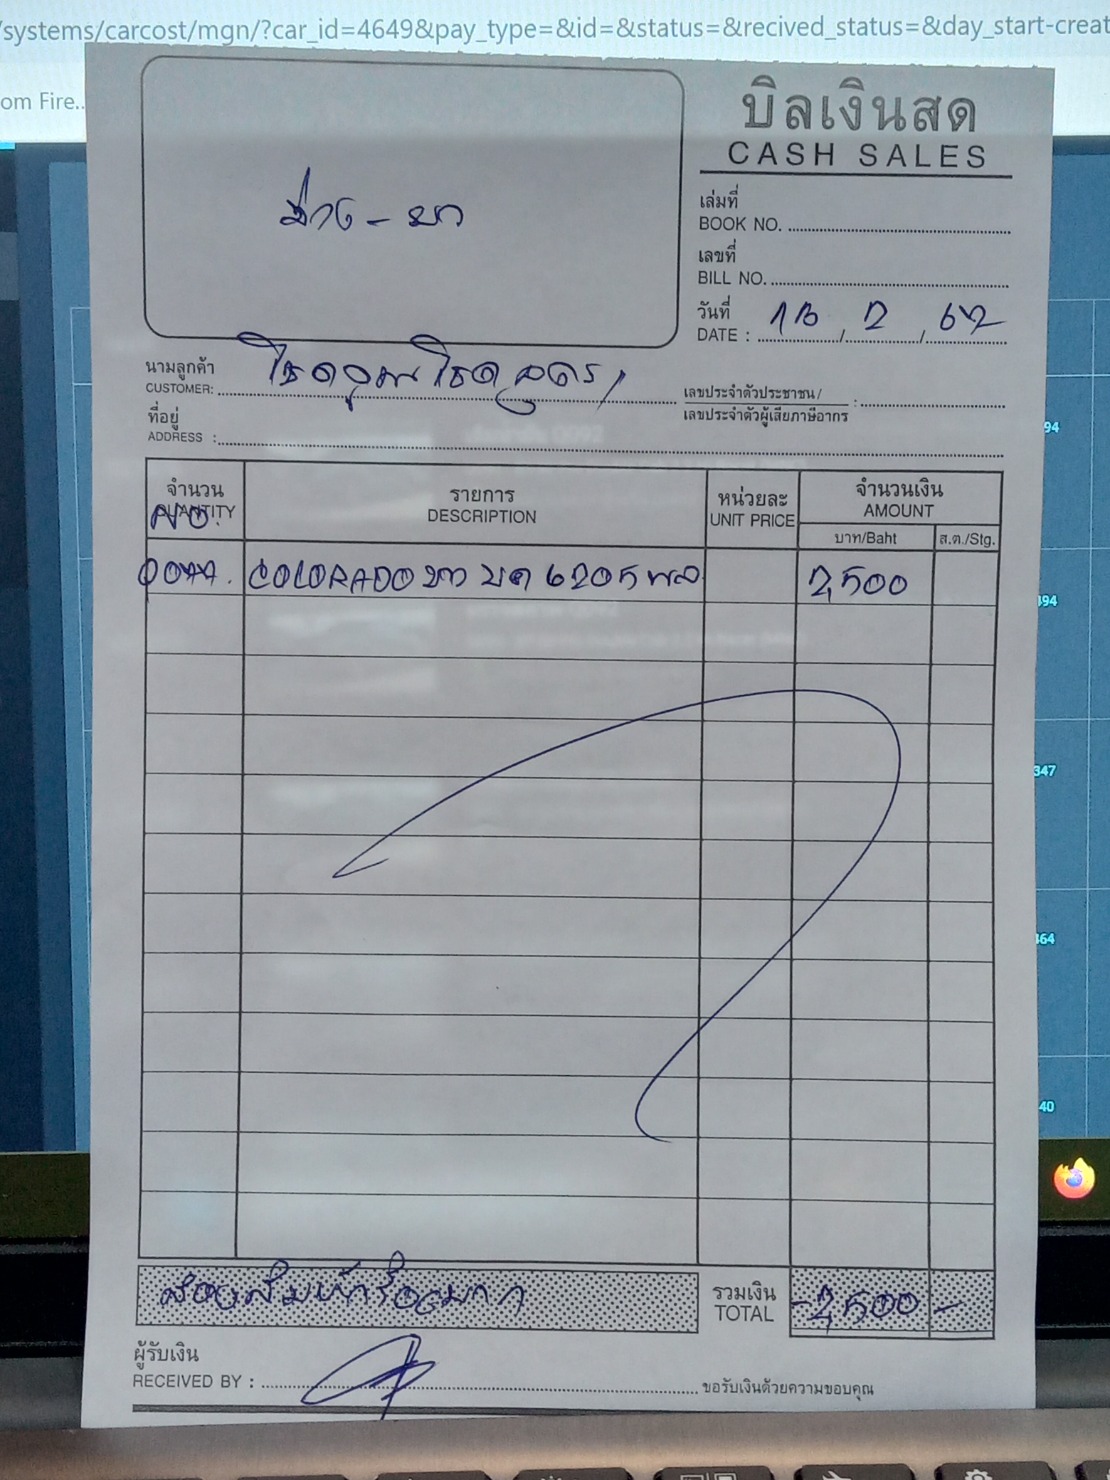 /systems/carcost/mgn/?car_id=4649&pay_type=&id=&status=&recived_status=&day_start-creat
om Fire..
บิลเงินสด
CASH SALES
ช่าง - ยา
เล่มที่
BOOK NO.
เลขที่
BILL NO.
วันที่
DATE : 13 / 2 / 62
นามลูกค้า
CUSTOMER:
เลขประจำตัวประชาชน/
เลขประจำตัวผู้เสียภาษีอากร :
ที่อยู่
ADDRESS :
จำนวน รายการ หน่วยละ จำนวนเงิน
QUANTITY DESCRIPTION UNIT PRICE AMOUNT
NO.
บาท/Baht ส.ต./Stg.
COLORADO 2,500
รวมเงิน
TOTAL -2,500-
ผู้รับเงิน
RECEIVED BY :
ขอรับเงินด้วยความขอบคุณ
94
394
347
464
40